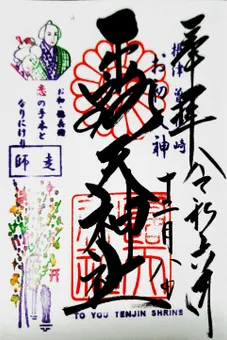 奉拝 令和六年
摂津 曽根崎
お初 神
十二月八日
露天神社
お初・徳兵衛
恋の手本と
なりにけり
師走
TO YOU TENJIN SHRINE